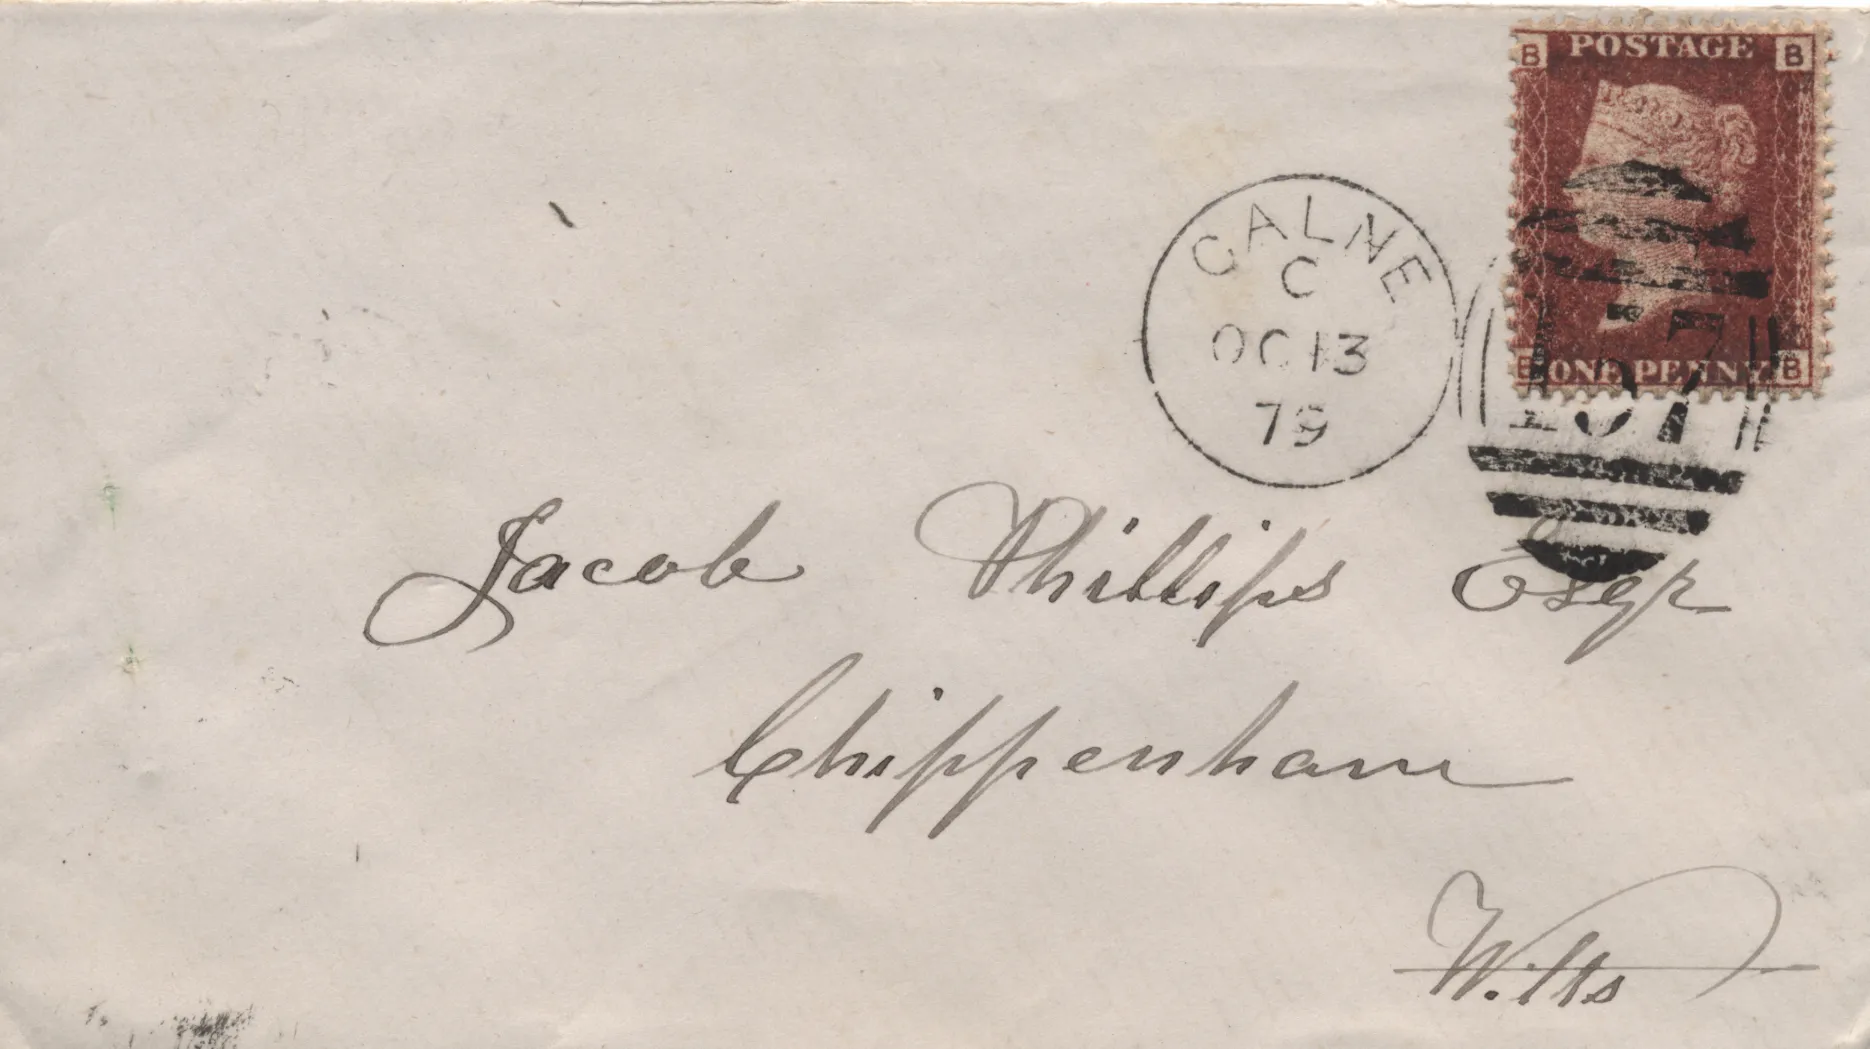 B POSTAGE B
B ONE PENNY B
CALNE
C
OC 13
79
157
Jacob Phillips Esqr
Chippenham
Wilts